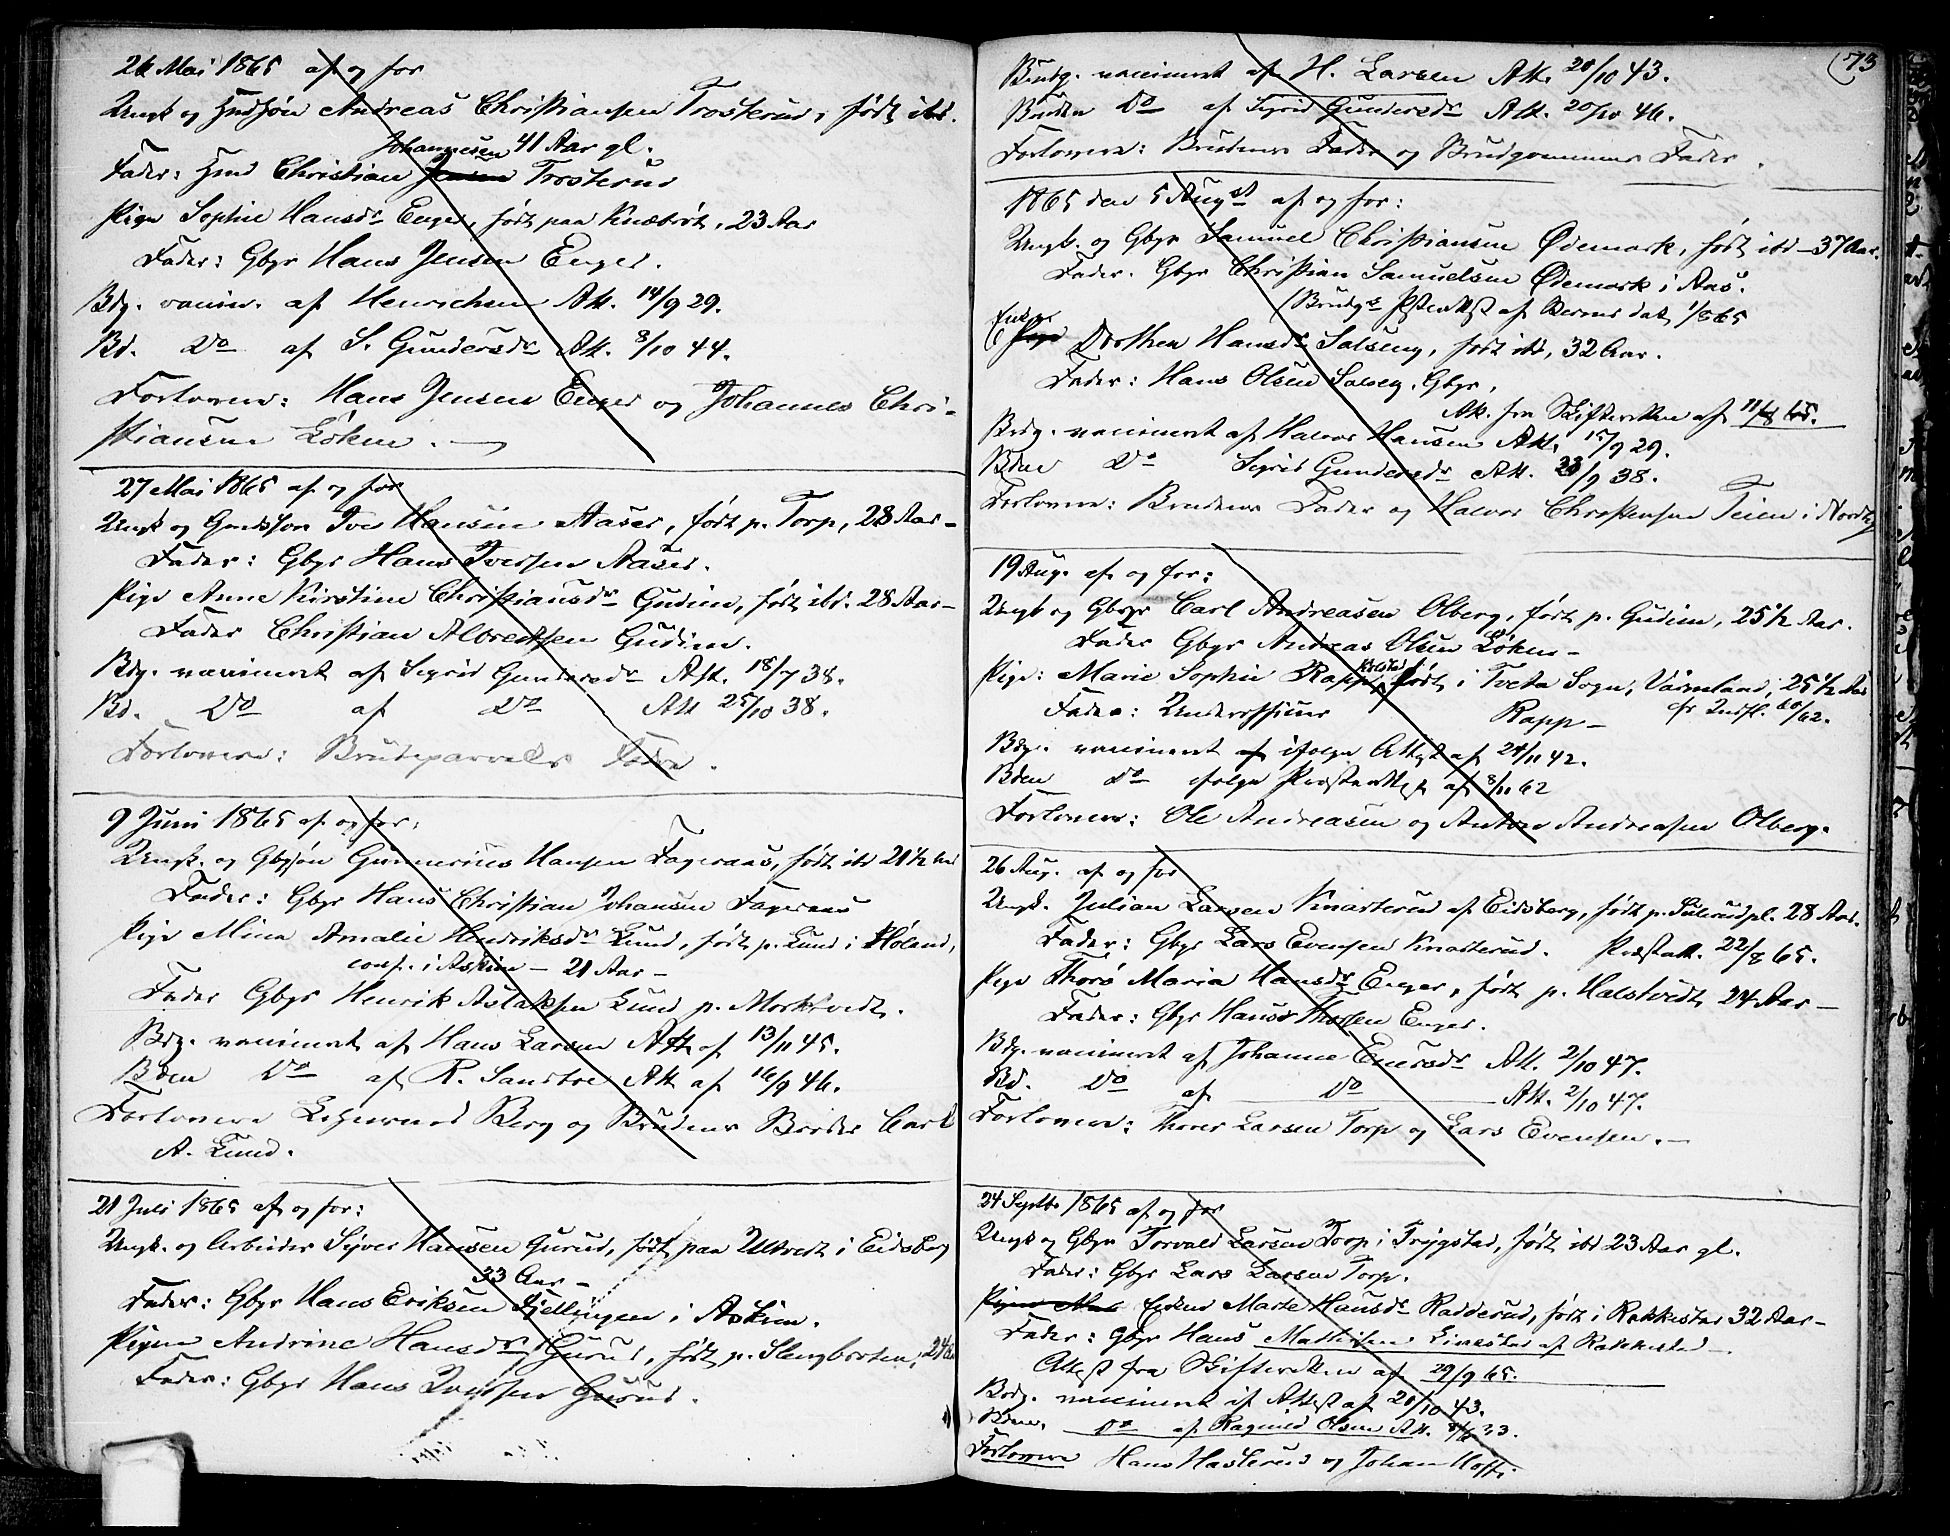 26 Mai 1865 af og for
Ungk og Husljón Andreas Christiansen Trosterud, født ibd.
Johannesen 41 Aar gl.
Fader: Hmd Christian Jensen Trosterud
Pige Sophie Hansdr Enger, født paa Knæbøt, 23 Aar
Fader: Gbgr Hans Jensen Enger.
Bdg. vaccin. af Henrichsen Att. 14/9 29.
Bd. Do af S. Gundersdr Att. 8/10 44.
Forlovere: Hans Jensen Enger og Johannes Chri-
stiansen Løken.
27 Mai 1865 af og for
Ungk og Gmdssøn Iver Hansen Aaser, født p. Torp, 28 Aar-
Fader: Gbgr Hans Iversen Aaser.
Pige Anne Kirstine Christiansdr Gudim, født ibd. 28 Aar-
Fader Christian Albretsen Gudim.
Bdg. vaccineret af Sigrid Gundersdr Att. 18/7 38.
Bd. Do af Do Att 25/10 38.
Forlovere: Brudeparrets Fædre.
9 Juni 1865 af og for:
Ungk. og Gbgsøn Gunnerius Hansen Fageraas, født ibd 21½ Aar
Fader: Gbgr Hans Christian Johansen Fageraas
Pige Mina Amalie Hendriksdr Lund, født p. Lund i Høland,
conf. i Askim - 21 Aar -
Fader Gbgr Henrik Aslaksen Lund p. Morktvedt.
Bdg. vaccineret af Hans Larsen Att af 13/11 45.
Bden Do af R. Sandtrø Att af 16/9 46.
Forlovere Lehnsmd Berg og Brudens Broder Carl
A. Lund.
21 Juli 1865 af og for:
Ungk. og Arbeider Syver Hansen Gurud, født paa Ultvedt i Eidsberg
33 Aar -
Fader: Gbgr Hans Eriksen Fjellingen i Askim.
Pigen Andrine Hansdr Gurud, født p. Slengbraaten, 24 Aar
Fader: Gbgr Hans Iversen Gurud.
73
Brudg. vaccineret af H. Larsen Att. 20/10 43.
Bruden Do af Sigrid Gundersdr Att. 20/10 46.
Forlovere: Brudens Fader og Brudgommens Fader.
1865 den 5 August af og for:
Ungk. og Gbgr Samuel Christiansen Ødemark, født ibd - 37 Aar.
Fader. Gbgr Christian Samuelsen Ødemark i Aas.
(Brudgs Pstattest af Berven dat. 1/8 65
Enken
Pige Dorthea Hansdr Salseng, født ibd, 32 Aar.
Fader: Hans Olsen Salseg, Gbgr,
Att. fra Skifteretten af 11/8 65.
Brdg. vaccineret af Halvor Hansen Att. 15/9 29.
Bden Do Sigrid Gundersdr Att. 23/9 38.
Forlovere: Brudens Fader og Halvor Christensen Teien i Nordby
19 Aug. af og for:
Ungk og Gbgr Carl Andreasen Olberg, født p. Gudim, 25½ Aar.
Fader Gbgr Andreas Olsen Løken -
Pige: Marie Sophie Rapp, født i Tveta Sogn, Värmland, 25½ Aar
Fader: Underofficier Rapp - cfr Indfl. 20/62.
Bdg. vaccineret af ifølge Attest af 24/11 42.
Bden Do ifølge Præsteattest af 8/11 62
Forlovere: Ole Andreasen og Anton Andreasen Olberg.
26 Aug. af og for
Ungk. Julian Larsen Knatterud af Eidsberg, født p. Sulerudpl. 28 Aar.
Fader: Gbgr Lars Evensen Knatterud. Præstatt. 22/8 65.
Pige Thorø Maria Hansdr Enger, født p. Halstvedt 24 Aar -
Fader: Gbgr Hans Thorsen Enger.
Bdg. vaccineret af Johanne Enersdr Att. 2/10 47.
Bd. Do af Do Att. 2/10 47.
Forlovere: Thorer Larsen Torp og Lars Evensen.-
24 Septbr 1865 af og for
Ungk og Gbgr Torvald Larsen Torp i Trygstad, født ibd 23 Aar gl.
Fader: Gbgr Lars Larsen Torp.
Pigen Enken Marte Hansdr Radderud, født i Rakkestad 32 Aar -
Fader: Gbgr Hans Mathisen af Rakkestad -
Attest fra Skifteretten af 29/9 65.
Brdg. vaccineret if Attest af 20/10 43.
Bden. Do af Ragnild Olsen Att. 33.
Forlovere Hans Hasterud og Johan